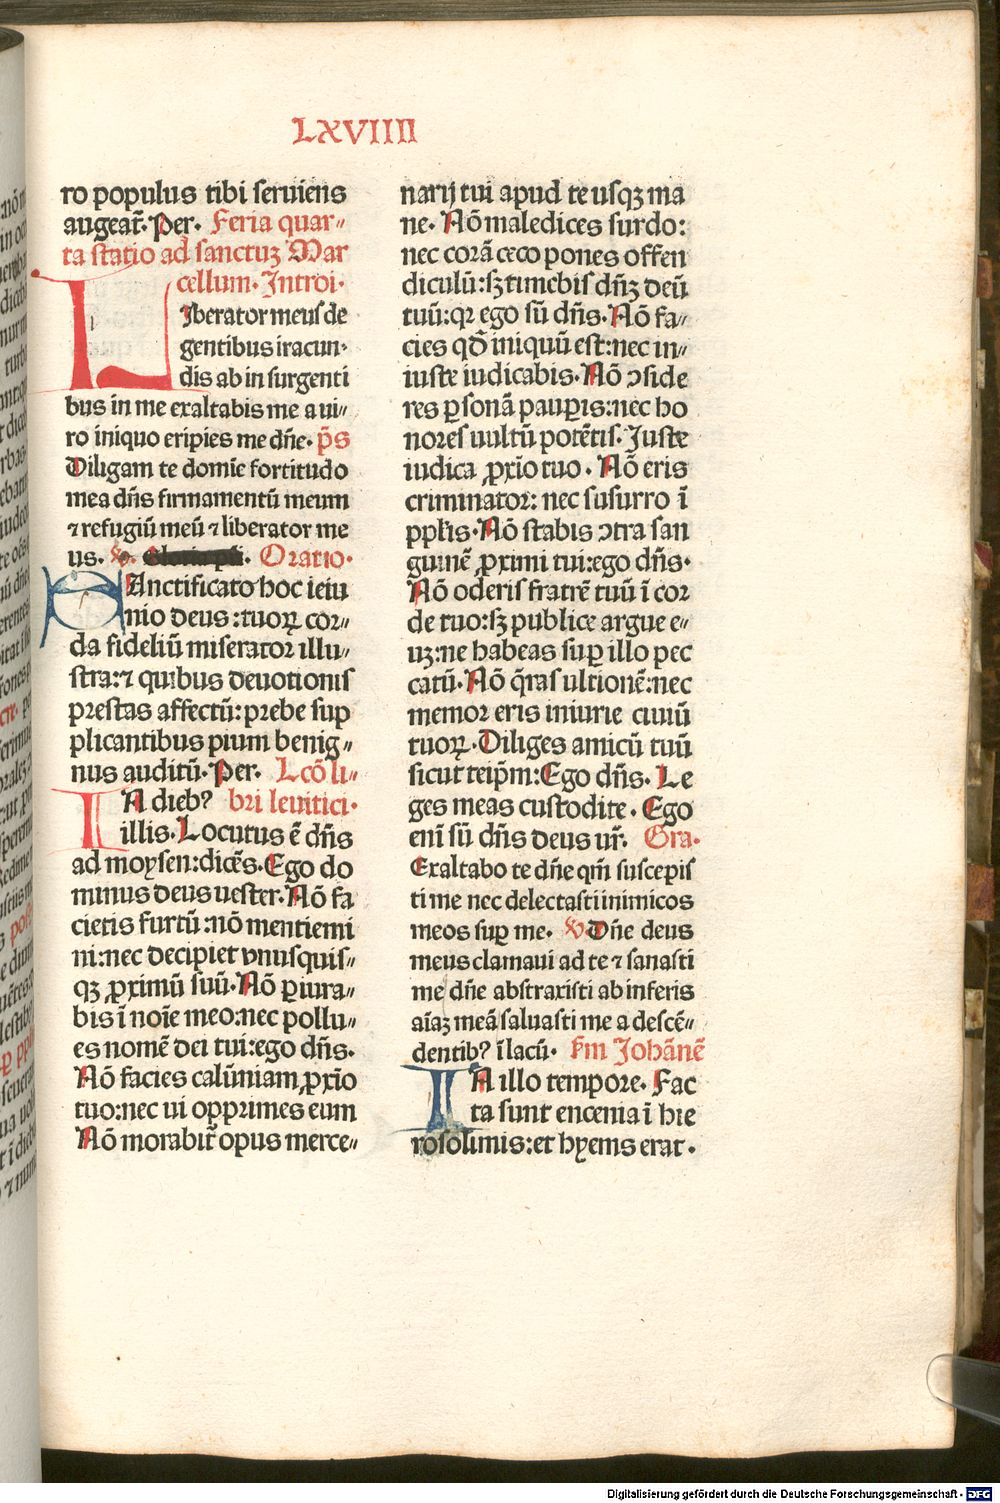 LXVIIII
ro populus tibi seruiens
augeat᷑. Per. Feria quar〃
ta statio ad sanctuꝫ Mar
cellum. Introi.
LIberator meus de
gentibus iracun〃
dis ab in surgenti
bus in me exaltabis me a ui〃
ro iniquo eripies me dn̄e. p̄s
Diligam te domīe fortitudo
mea dn̄s firmamentū meum
⁊ refugiū meū ⁊ liberator me
us. ℣. Gloria pri. Oratio.
SAnctificato hoc ieiu
nio deus: tuoꝝ cor〃
da fideliū miserator illu〃
stra: ⁊ quibus deuotionis
prestas affectū: prebe sup
plicantibus pium benig〃
nus auditū. Per. Lcō li〃
IN dieb⁹ bri leuitici.
illis. Locutus ē dn̄s
ad moysen: dicēs. Ego do
minus deus uester. Nō fa
cietis furtū: nō mentiemi
ni: nec decipiet vnusquis〃
qꝫ ꝓximū suū. Nō ꝑiura〃
bis ī noīe meo: nec pollu〃
es nomē dei tui: ego dn̄s.
Nō facies calūniam ꝓxīo
tuo: nec ui opprimes eum
Nō morabit᷑ opus merce〃
narij tui apud te usqꝫ ma
ne. Nō maledices surdo:
nec corā ceco pones offen
diculū: sꝫ timebis dn̄ꝫ deū
tuū: qꝛ ego sū dn̄s. Nō fa〃
cies qd̄ iniquū est: nec in〃
iuste iudicabis. Nō ↄside
res ꝑsonā pauꝑis: nec ho
nores uultū potētis. Iuste
iudica ꝓxīo tuo. Nō eris
criminator: nec susurro ī
ppl̄is. Nō stabis ↄtra san
guinē ꝓximi tui: ego dn̄s.
Nō oderis fratrē tuū ī cor
de tuo: sꝫ publice argue e〃
uꝫ: ne habeas suꝑ illo pec
catū. Nō q̄ras ultionē: nec
memor eris iniurie ciuiū
tuoꝝ. Diliges amicū tuū
sicut teip̄m: Ego dn̄s. Le
ges meas custodite. Ego
enī sū dn̄s deus ur̄. Gra.
Exaltabo te dn̄e qm̄ suscepis
ti me nec delectasti inimicos
meos suꝑ me. ℣ Dn̄e deus
meus clamaui ad te ⁊ sanasti
me dn̄e abstraxisti ab inferis
aīaꝫ meā saluasti me a descē〃
dentib⁹ ī lacū. Fm̄ Johānē
IN illo tempore. Fac
ta sunt encenia ī hie
rosolimis: et hyems erat.
Digitalisierung gefördert durch die Deutsche Forschungsgemeinschaft - DFG